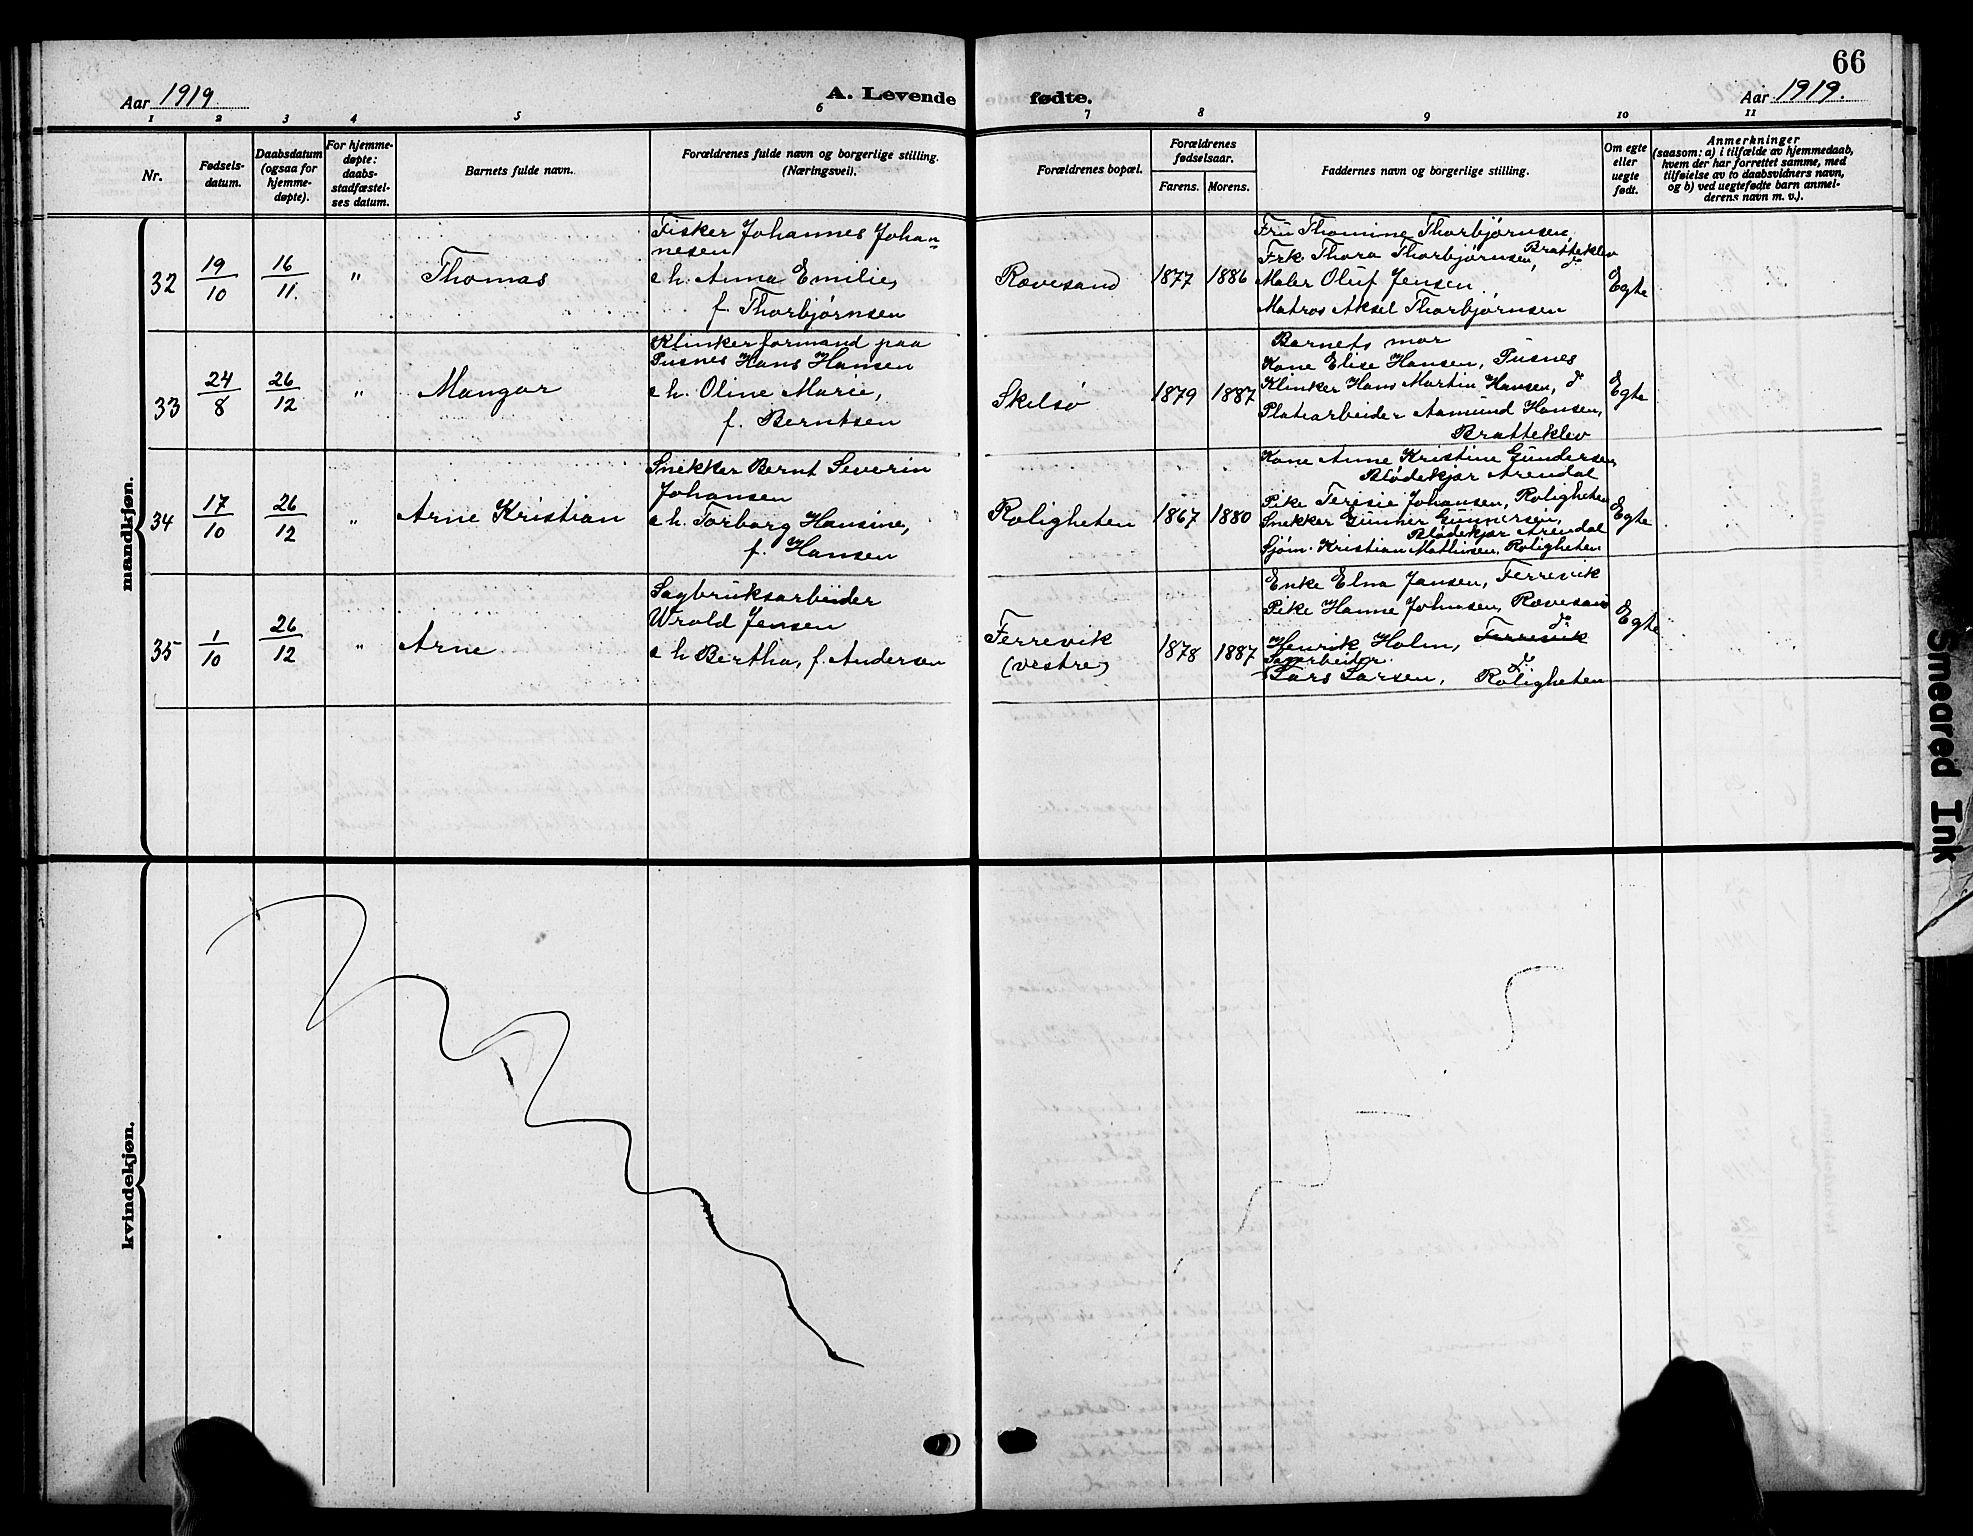 66
Aar 1919.
A. Levende
fødte.
Aar 1919.
1 2 3 4 5 6 7 8 9 10 11
Nr.
Fødsels-
datum.
Daabsdatum
(ogsaa for
hjemme-
døpte).
For hjemme-
døpte:
daabs-
stadfæstel-
ses datum.
Barnets fulde navn.
Forældrenes fulde navn og borgerlige stilling.
(Næringsvei).
Forældrenes bopæl.
Forældrenes
fødselsaar.
Farens. Morens.
Faddernes navn og borgerlige stilling.
Om egte
eller
uegte
født.
Anmerkninger
(saasom: a) i tilfælde av hjemmedaab,
hvem der har forrettet samme, med
tilføielse av to daabsvidners navn,
og b) ved uegtefødte barn anmel-
derens navn m. v.).
mandkjøn.
32
19/10
16/11.
"
Thomas
Fisker Johannes Johan-
nesen
o h. Anna Emilie,
f. Thorbjørnsen
Rævesand
1877
1886
Fru Thomine Thorbjørnsen,
Bratteklev
Frk Thora Thorbjørnsen, do
Maler Oluf Jensen
Matros Aksel Thorbjørnsen
Egte
33
24/8
26/12
"
Mangor
Klinkerformand paa
Pusnes Hans Hansen
o h. Oline Marie,
f. Berntsen
Skilsø
1879
1887
Barnets mor
Kone Elise Hansen, Pusnes
Klinker Hans Martin Hansen, do
Platearbeider Aamund Hansen,
Bratteklev
Egte
34
17/10
26/12
"
Arne Kristian
Snekker Bernt Severin
Johansen
o h. Torborg Hansine,
f. Hansen
Roligheten
1867
1880
Kone Anne Kristine Gundersen,
Blødekjær Arendal
Pike Teresie Johansen, Roligheten
Snekker Gunner Gunnersen,
Blødekjær Arendal
Sjøm. Kristian Mathisen, Roligheten
Egte
35
1/10
26/12
"
Arne
Sagbruksarbeider
Wrold Jensen
o h Bertha, f. Andersen
Ferrevik
(vestre)
1878
1887
Enke Elna Jansen, Ferrevik
Pike Hanne Johnsen, Rævesand
do
Henrik Holm, Ferrevik
Sagarbeider
do
Lars Larsen, Roligheten
Egte
kvindekjøn.
Smeared Ink